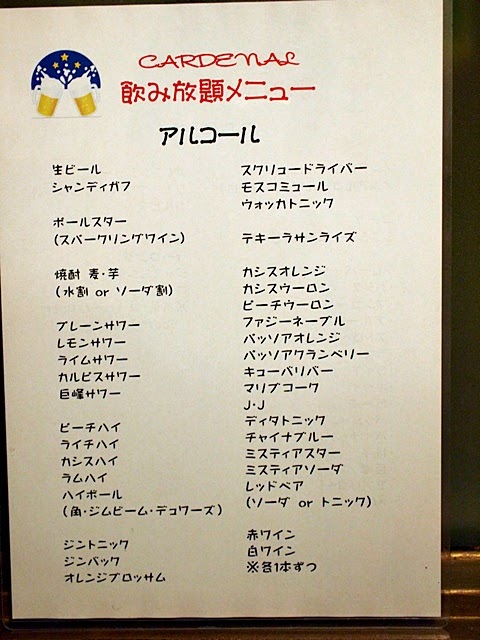 CARDENAL
飲み放題メニュー
アルコール
生ビール
シャンディガフ
ポールスター
(スパークリングワイン)
焼酎 麦・芋
(水割 or ソーダ割)
プレーンサワー
レモンサワー
ライムサワー
カルピスサワー
巨峰サワー
ピーチハイ
ライチハイ
カシスハイ
ラムハイ
ハイボール
(角・ジムビーム・デュワーズ)
ジントニック
ジンバック
オレンジブロッサム
スクリュードライバー
モスコミュール
ウォッカトニック
テキーラサンライズ
カシスオレンジ
カシスウーロン
ピーチウーロン
ファジーネーブル
パッソアオレンジ
パッソアクランベリー
キューバリバー
マリブコーク
J・J
ディタトニック
チャイナブルー
ミスティアスター
ミスティアソーダ
レッドベア
(ソーダ or トニック)
赤ワイン
白ワイン
※各1本ずつ